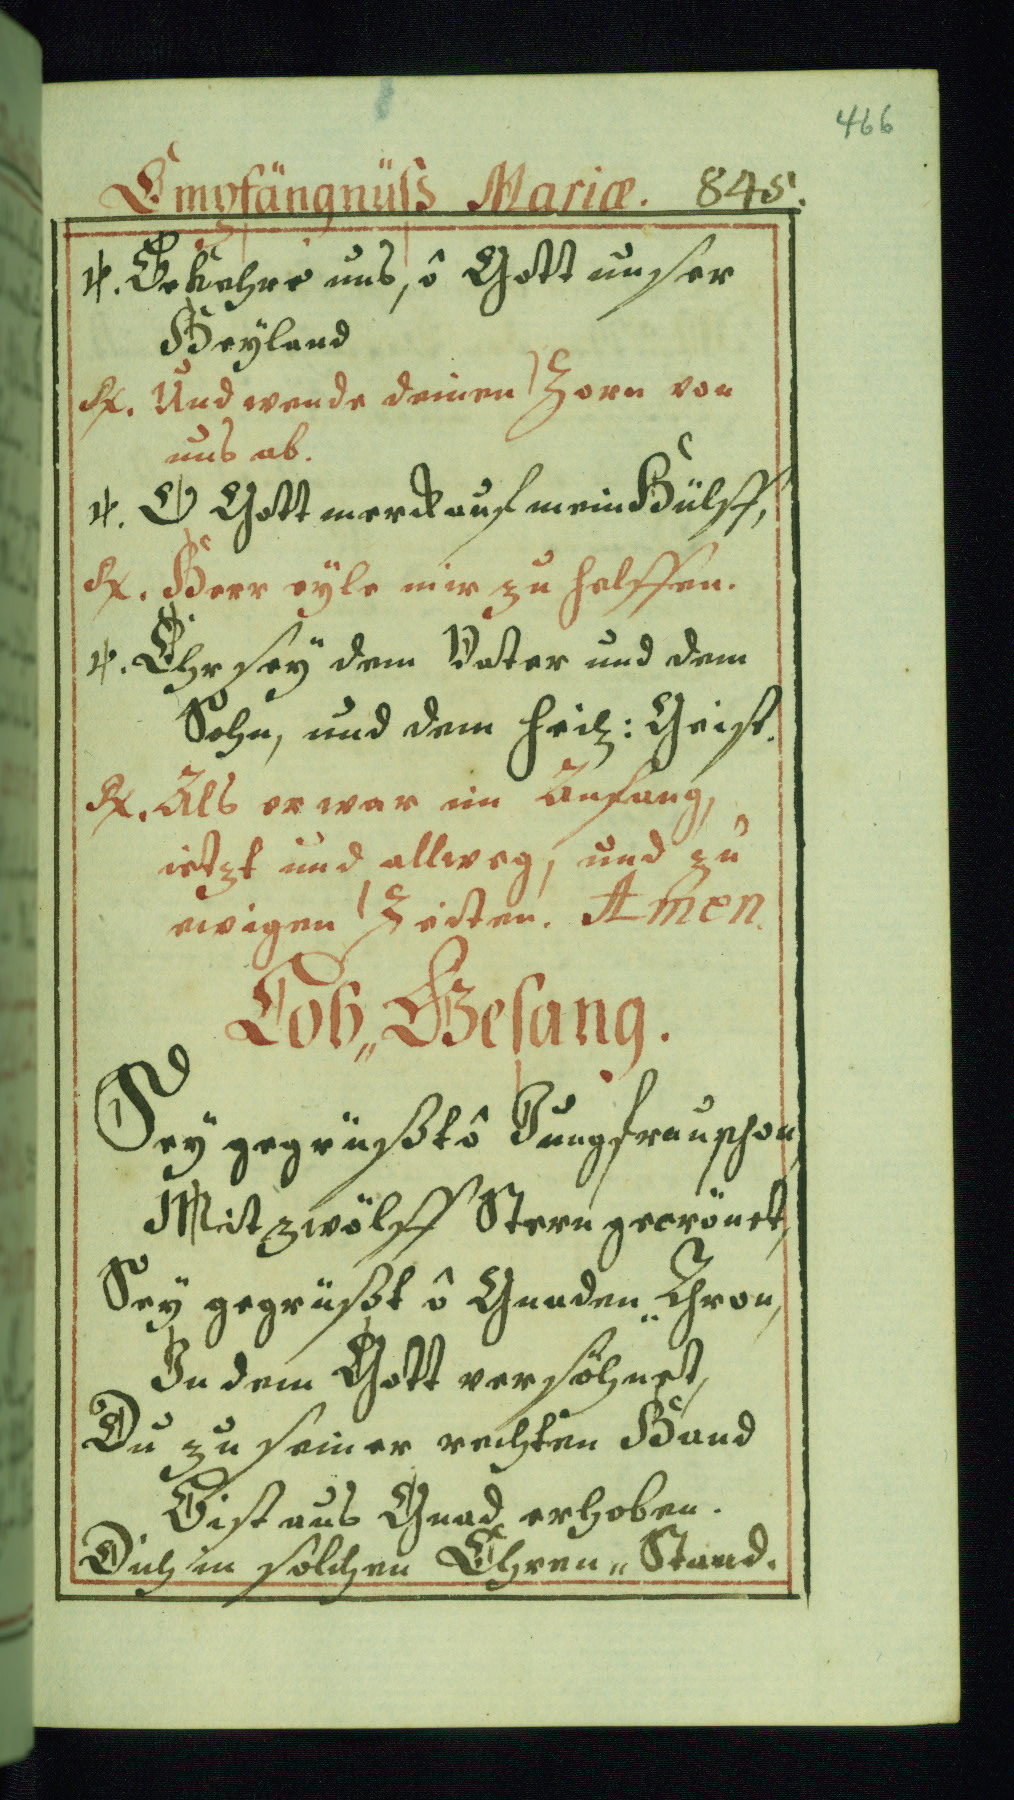 466
Empfängnüss Mariæ. 845.
℣. Bekehre uns, ô Gott unser
Heyland
℞. Und wende deinen Zorn von
uns ab.
℣. O Gott merck auf mein Hülff,
℞. Herr eyle mir zu helffen.
℣. Ehr seÿ dem Vater und dem
Sohn, und dem heil: Geist.
℞. Als er war im Anfang,
ietzt und allweg, und zu
ewigen Zeiten. Amen.
Lob„ Gesang.
Seÿ gegrüßt ô Jungfrau schon,
Mit zwölff Stern gecrönet,
Seÿ gegrüßt ô Gnaden„Thron,
In dem Gott versöhnet,
Du zu seiner rechten Hand
Bist aus Gnad erhoben.
Dich in solchen Ehren„Stand.